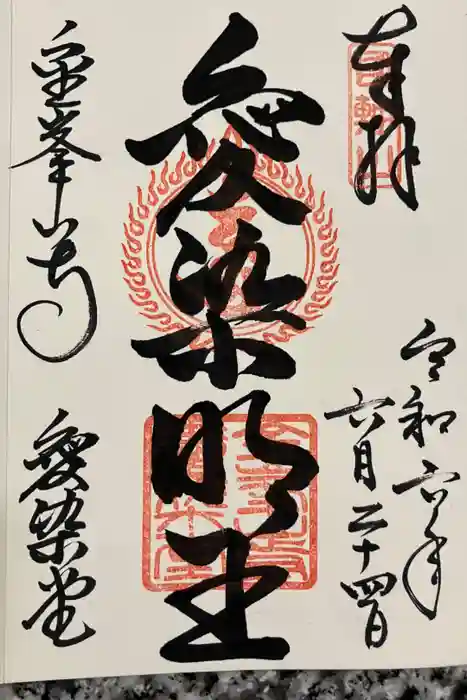 奉拝
國軸山
令和六年
六月二十四日
愛染明王
金峯山寺
愛染堂